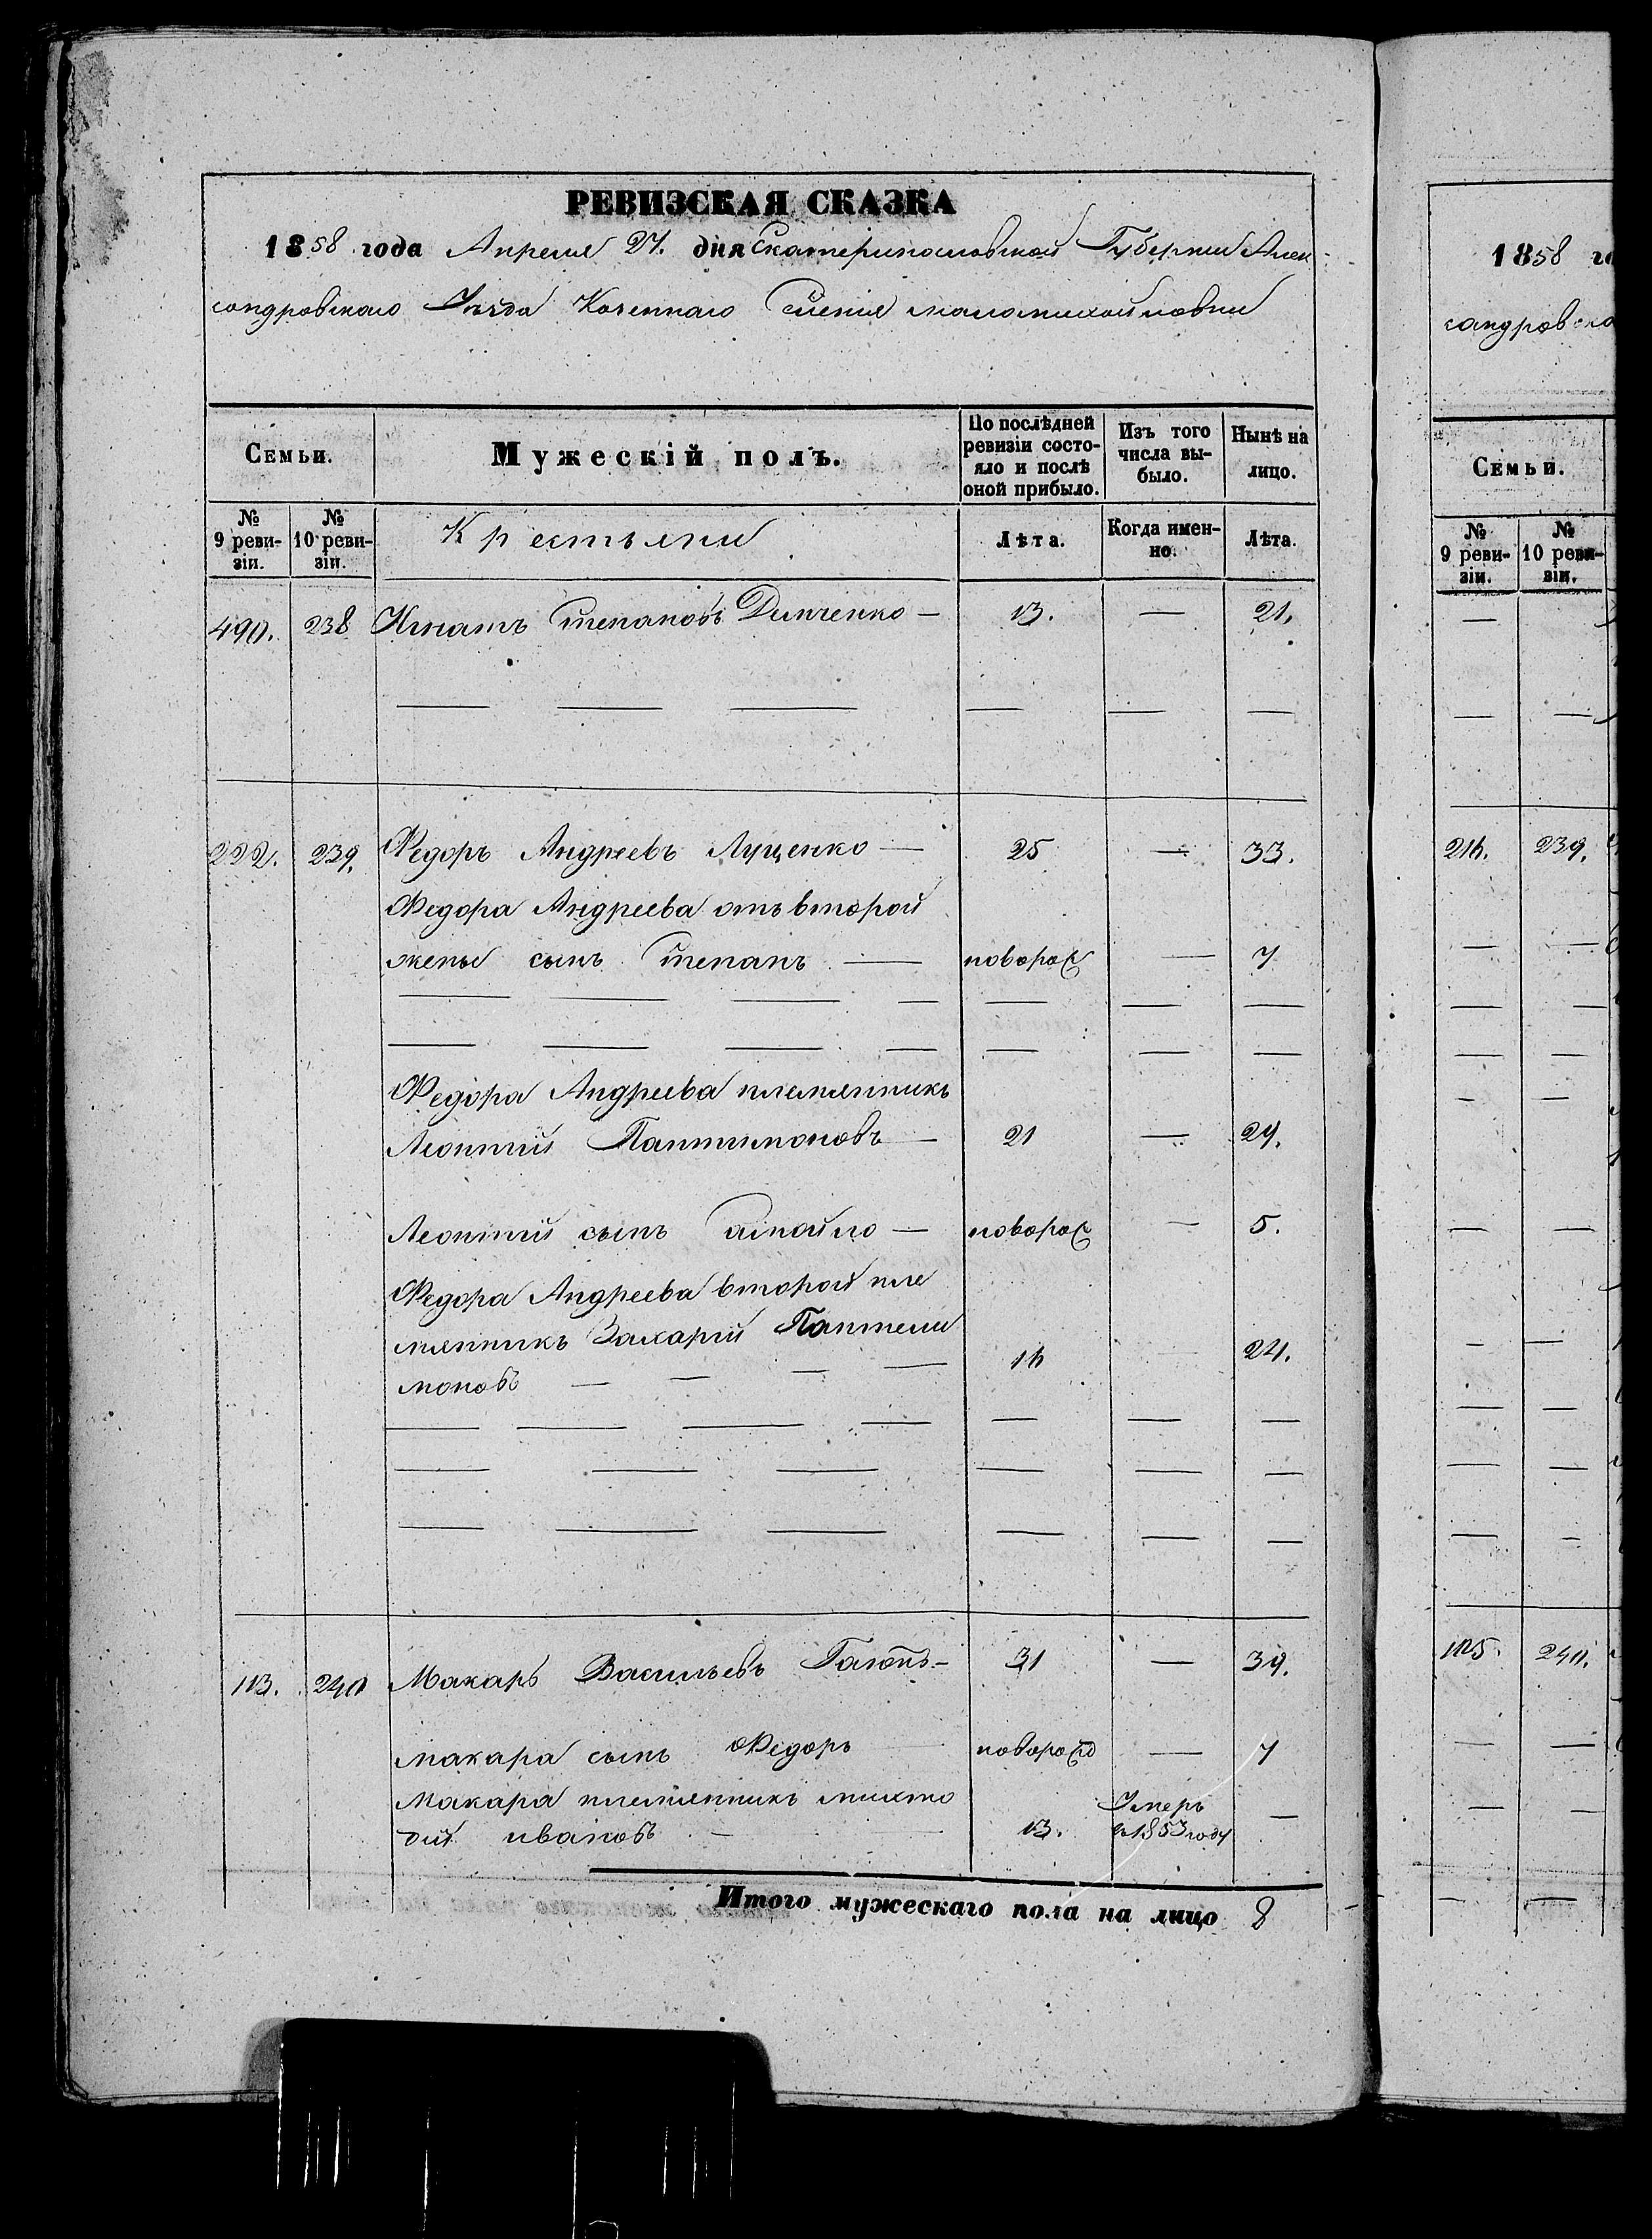 РЕВИЗСКАЯ СКАЗКА
1858 года Апреля 27. дня Екатеринославской Губернии Алек
сандровскаго Уезда Казеннаго Селения маломихайловки
Семьи. Мужескій полъ. По послѣдней ревизіи состо-яло и послѣ оной прибыло. Изъ того числа вы-было. Нынѣ на лицо.
№ 9 реви-зіи. № 10 реви-зіи. Крестьяни Лѣта. Когда имен-но. Лѣта.
490. 238 Игнатъ Степановъ Демченко — 13. — 21.
222. 239. Федоръ Андреевъ Луценко — 25 — 33.
Федора Андреева отъ второй
жены сынъ Степанъ — новорож — 7
Федора Андреева племянникъ
Леонтий Пантимоновъ — 21 — 29.
Леонтий сынъ Самойло — новорож — 5.
Федора Андреева второй пле
мянникъ Захарий Пантели
моновъ — — — — 16 — 24.
113. 240 Макаръ Васильевъ — 31 — 39.
Макара сынъ Федоръ — новорожд — 7
Макара племянникъ
дий ивановъ — 13. Умеръ в 1853 году —
Итого мужескаго пола на лицо 8
1858 го
сандровска
Семьи.
№ 9 реви-зіи. № 10 реви-зіи.
216. 239.
105. 240.